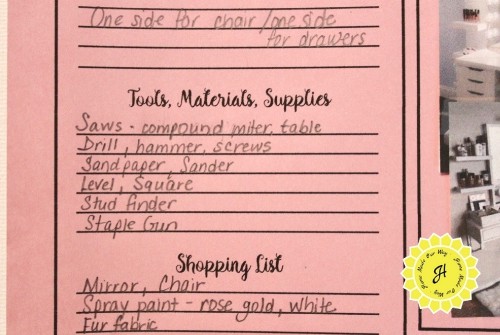 One side for chair/one side
for drawers
Tools, Materials, Supplies
Saws - compound miter, table
Drill, hammer, screws
Sandpaper, Sander
Level, Square
Stud finder
Staple Gun
Shopping List
Mirror, Chair
Spray paint - rose gold, white
Fur fabric
Home Made Our Way
JH
Home Made Our Way